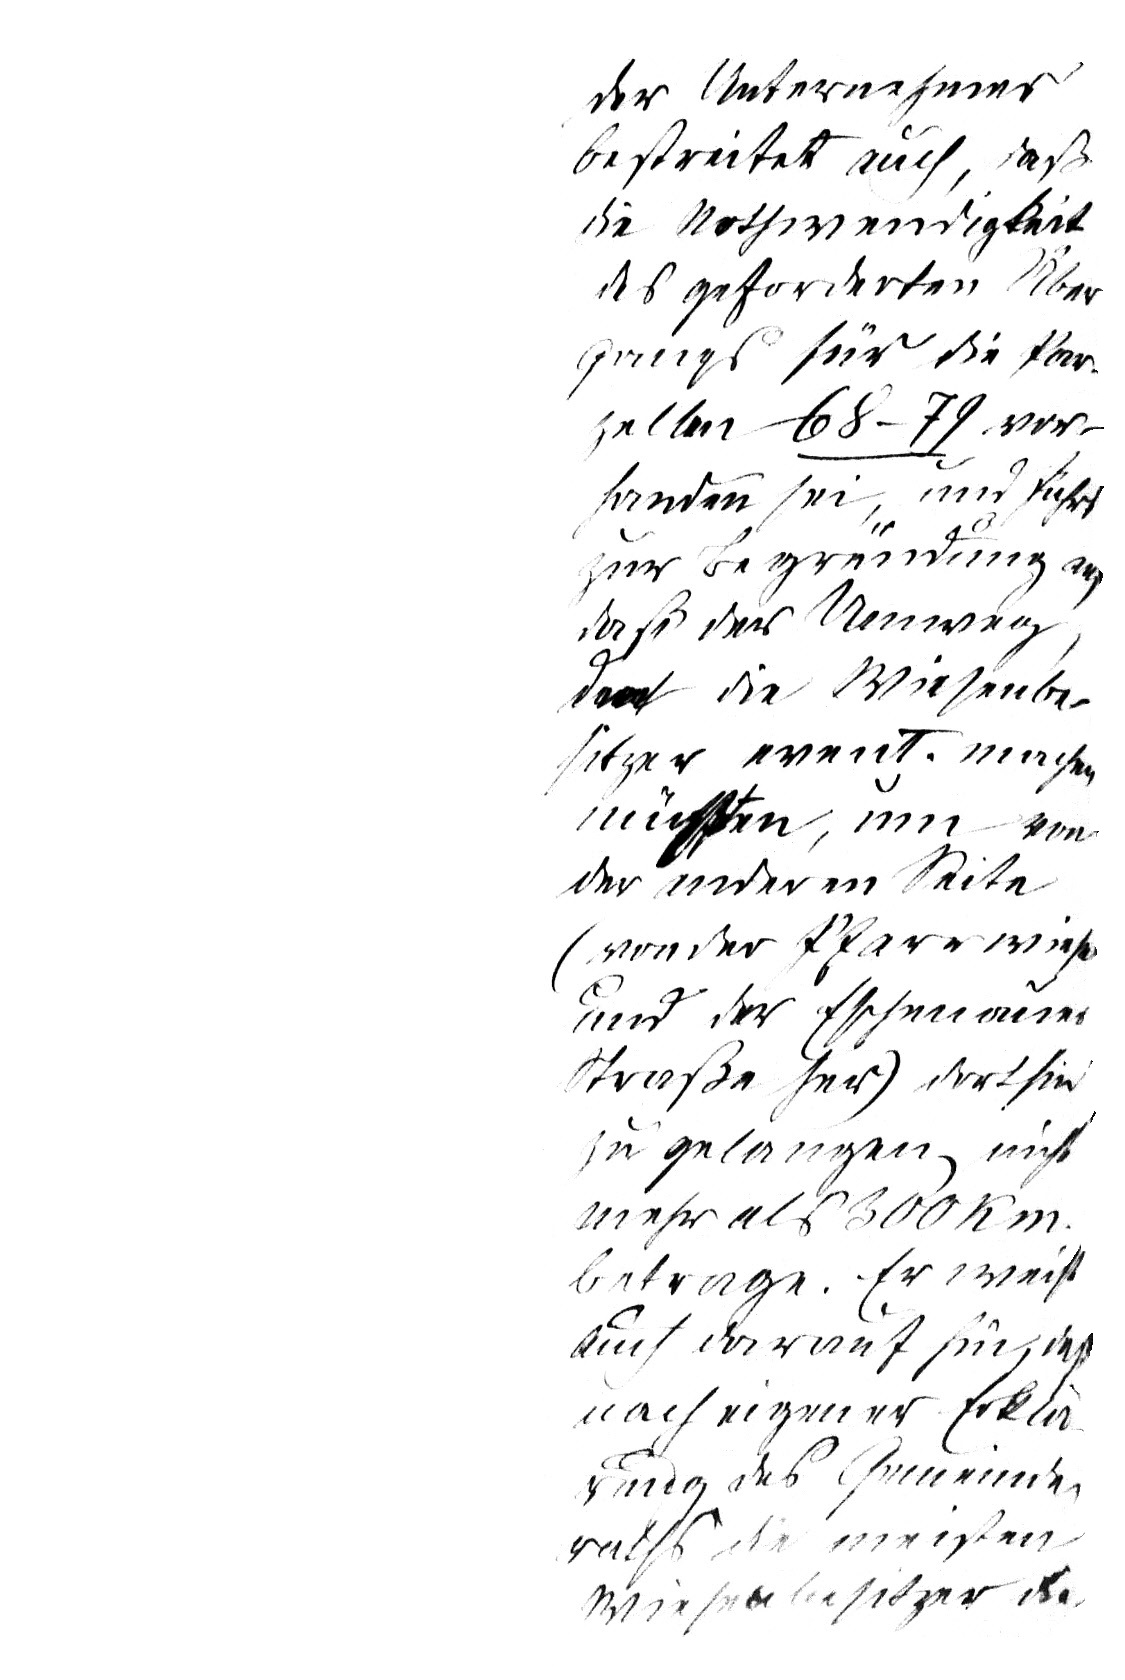 der Unternehmer
bestreitet auch, daß
die Nothwendigkeit
des geforderten Über
gangs für die Par-
zellen 68-79 vor-
handen sei, und führt
zur Begründung an,
daß der Umweg,
den die Wiesenbe-
sitzer event. machen
müßten, um von
der anderen Seite
(von der Pfarrwiese
und der Eschenauer
Straße her) dorthin
zu gelangen, nicht
mehr als 300 Km.
betrage. Er weist
auch darauf hin, daß
nach eigener Erklä-
rung des Gemeinde-
raths die meisten
Wiesenbesitzer